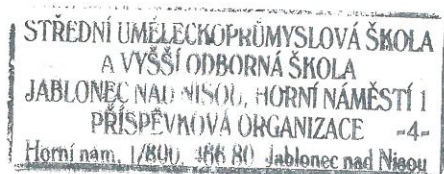 STŘEDNÍ UMĚLECKOPRŮMYSLOVÁ ŠKOLA
A VYŠŠÍ ODBORNÁ ŠKOLA
JABLONEC NAD NISOU, HORNÍ NÁMĚSTÍ 1
PŘÍSPĚVKOVÁ ORGANIZACE -4-
Horní nám. 1/800, 466 80 Jablonec nad Nisou